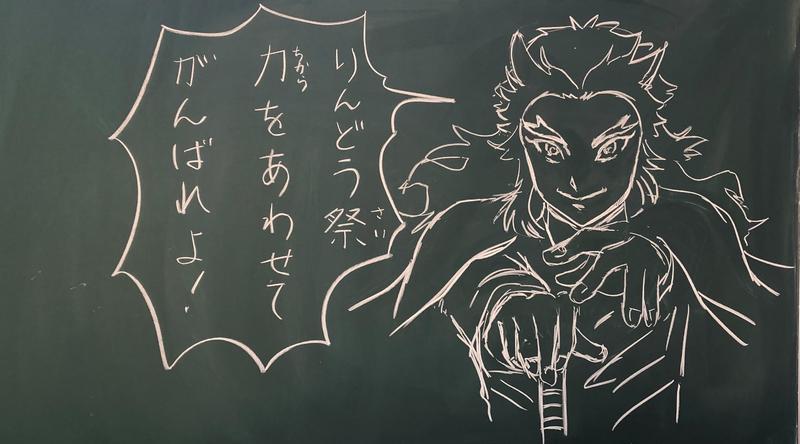 りんどう祭
さい
力をあわせて
ちから
がんばれよ！